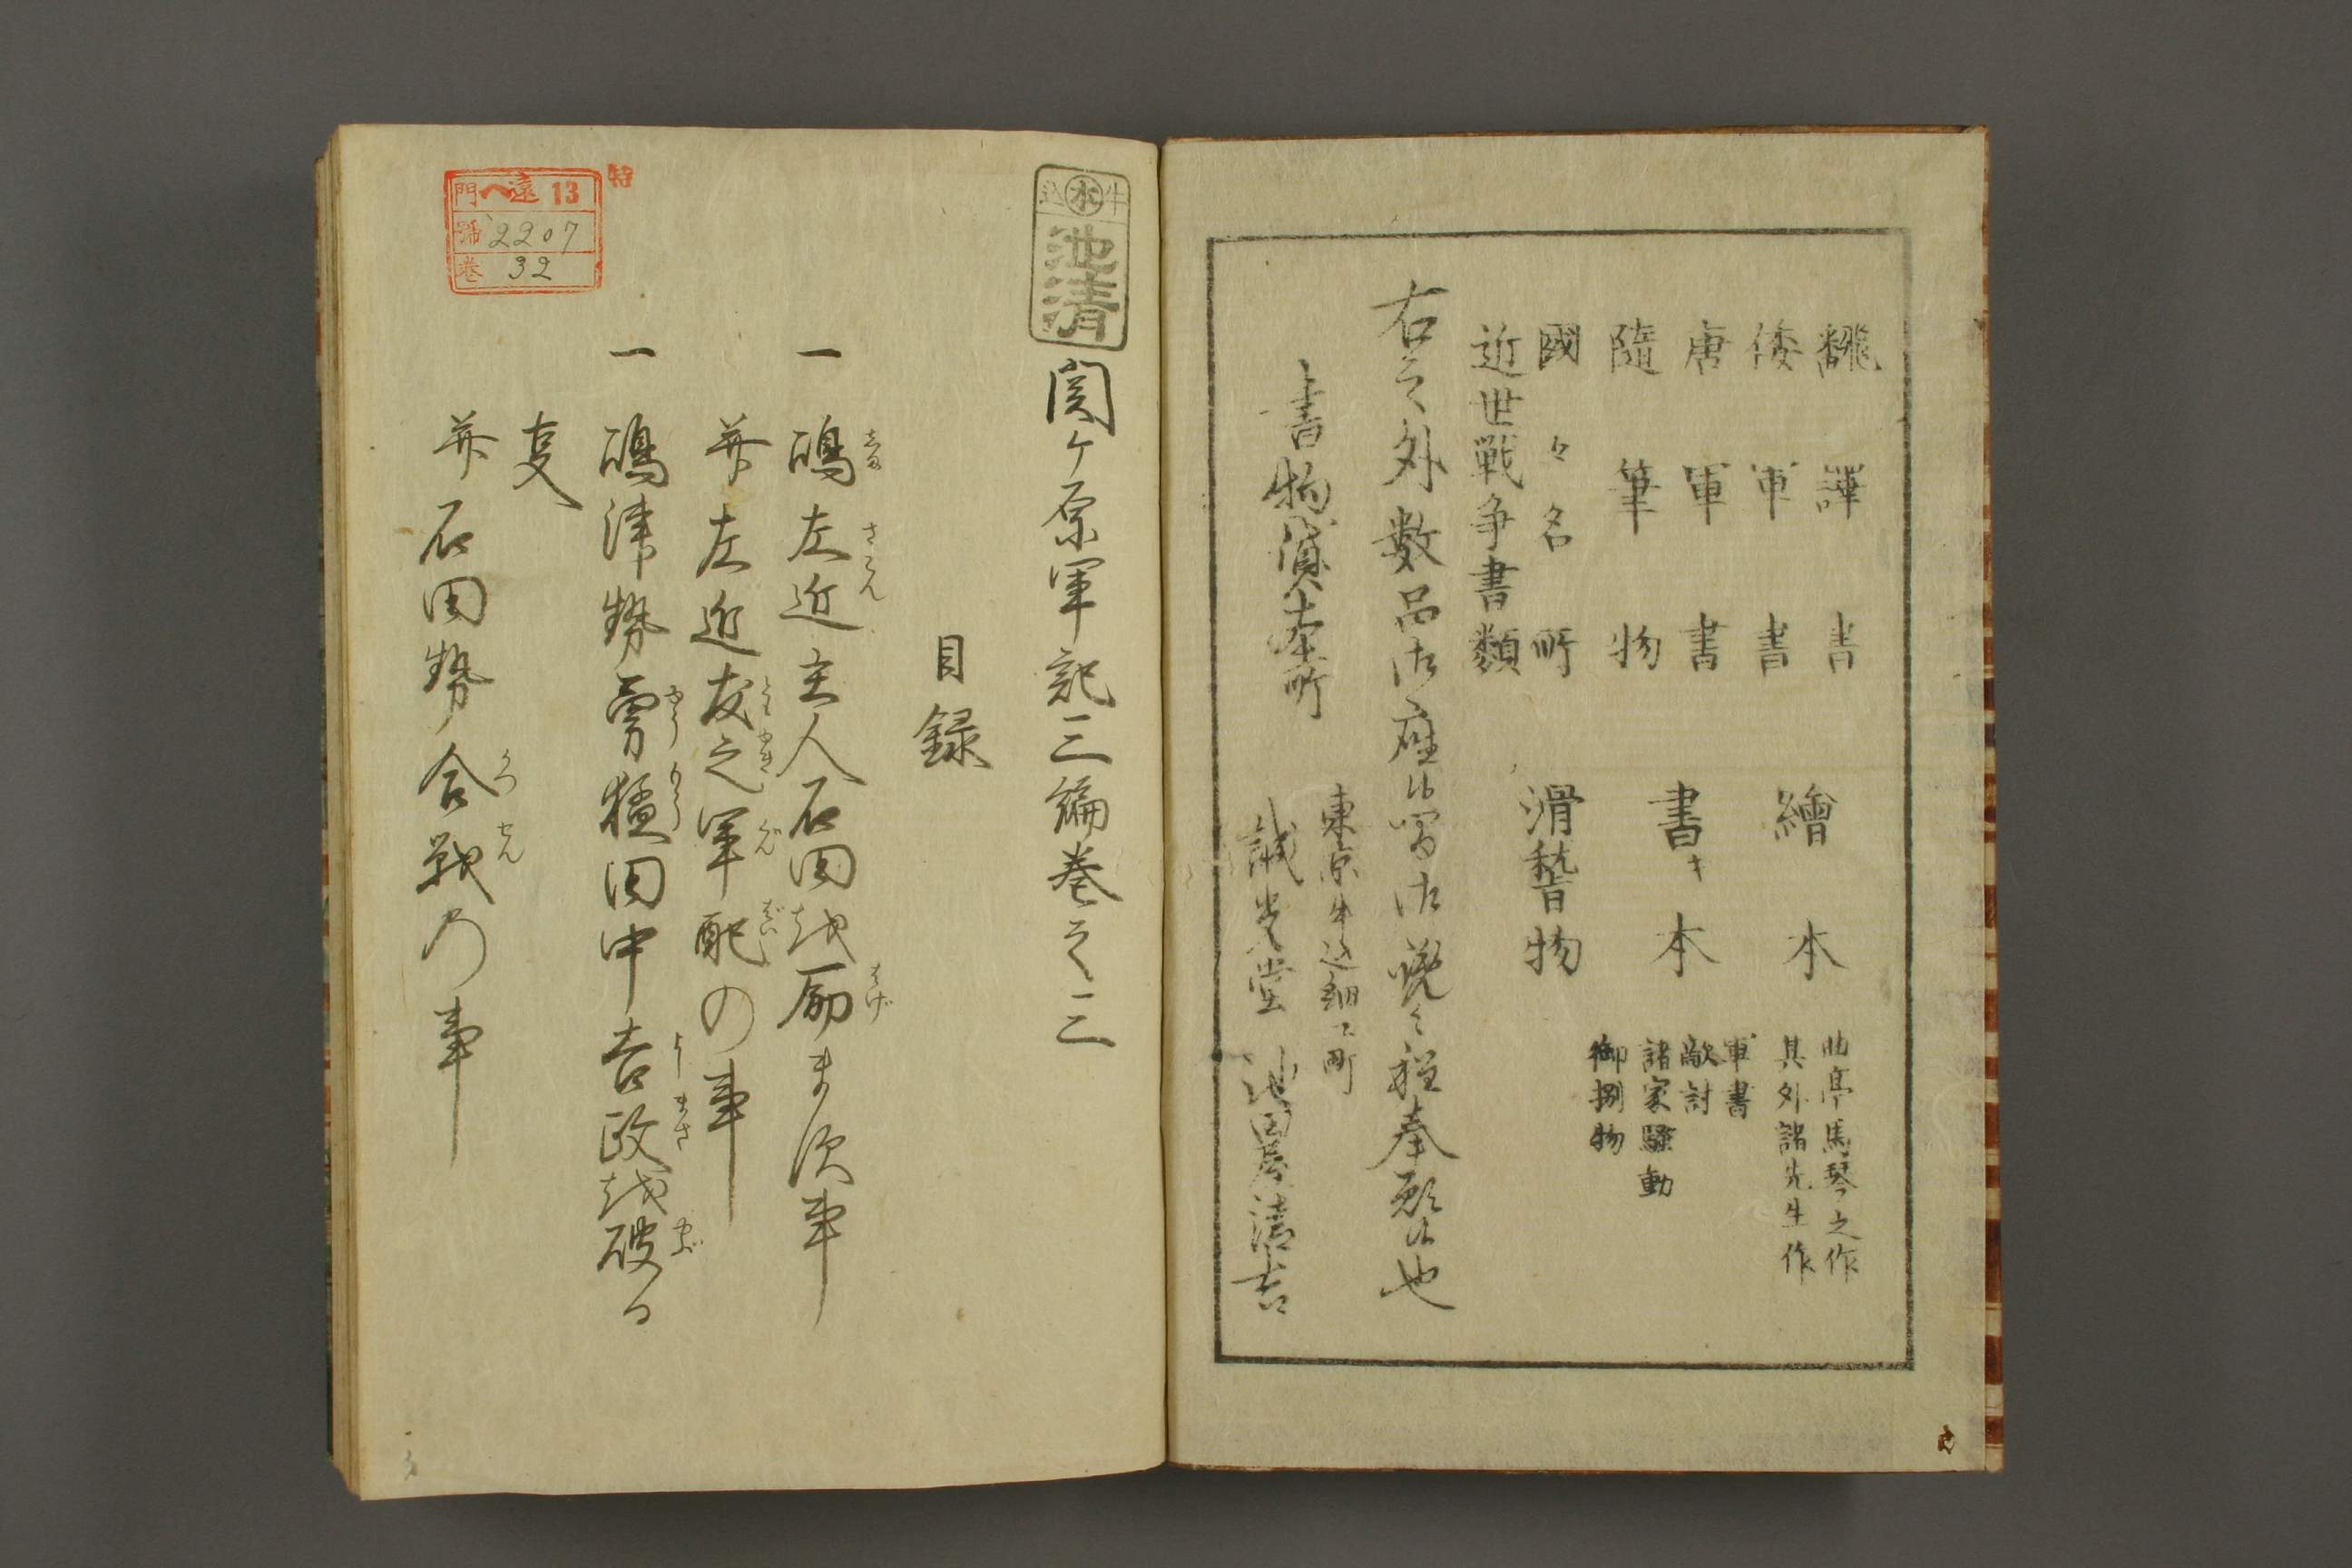 飜譯書
倭軍書
唐軍書
隨筆物
國々名所
近世戦争書類
繪本
曲亭馬琴之作
其外諸先生作
書キ本
軍書
敵討
諸家騒動
御捌物
滑稽物
右之外数品御座候間御覧之程奉願候也
書物貸本所
東京牛込細工町
誠光堂 池田屋清吉
牛込
本
池清
関ヶ原軍記三編巻之三
目録
一 嶋左近主人石田越励ま須事
并左近友之軍配の事
一 嶋津勢勇猛田中吉政越破る
叓
并石田勢合戦乃事
特
門 ヘ遠13
號 2207
巻 32